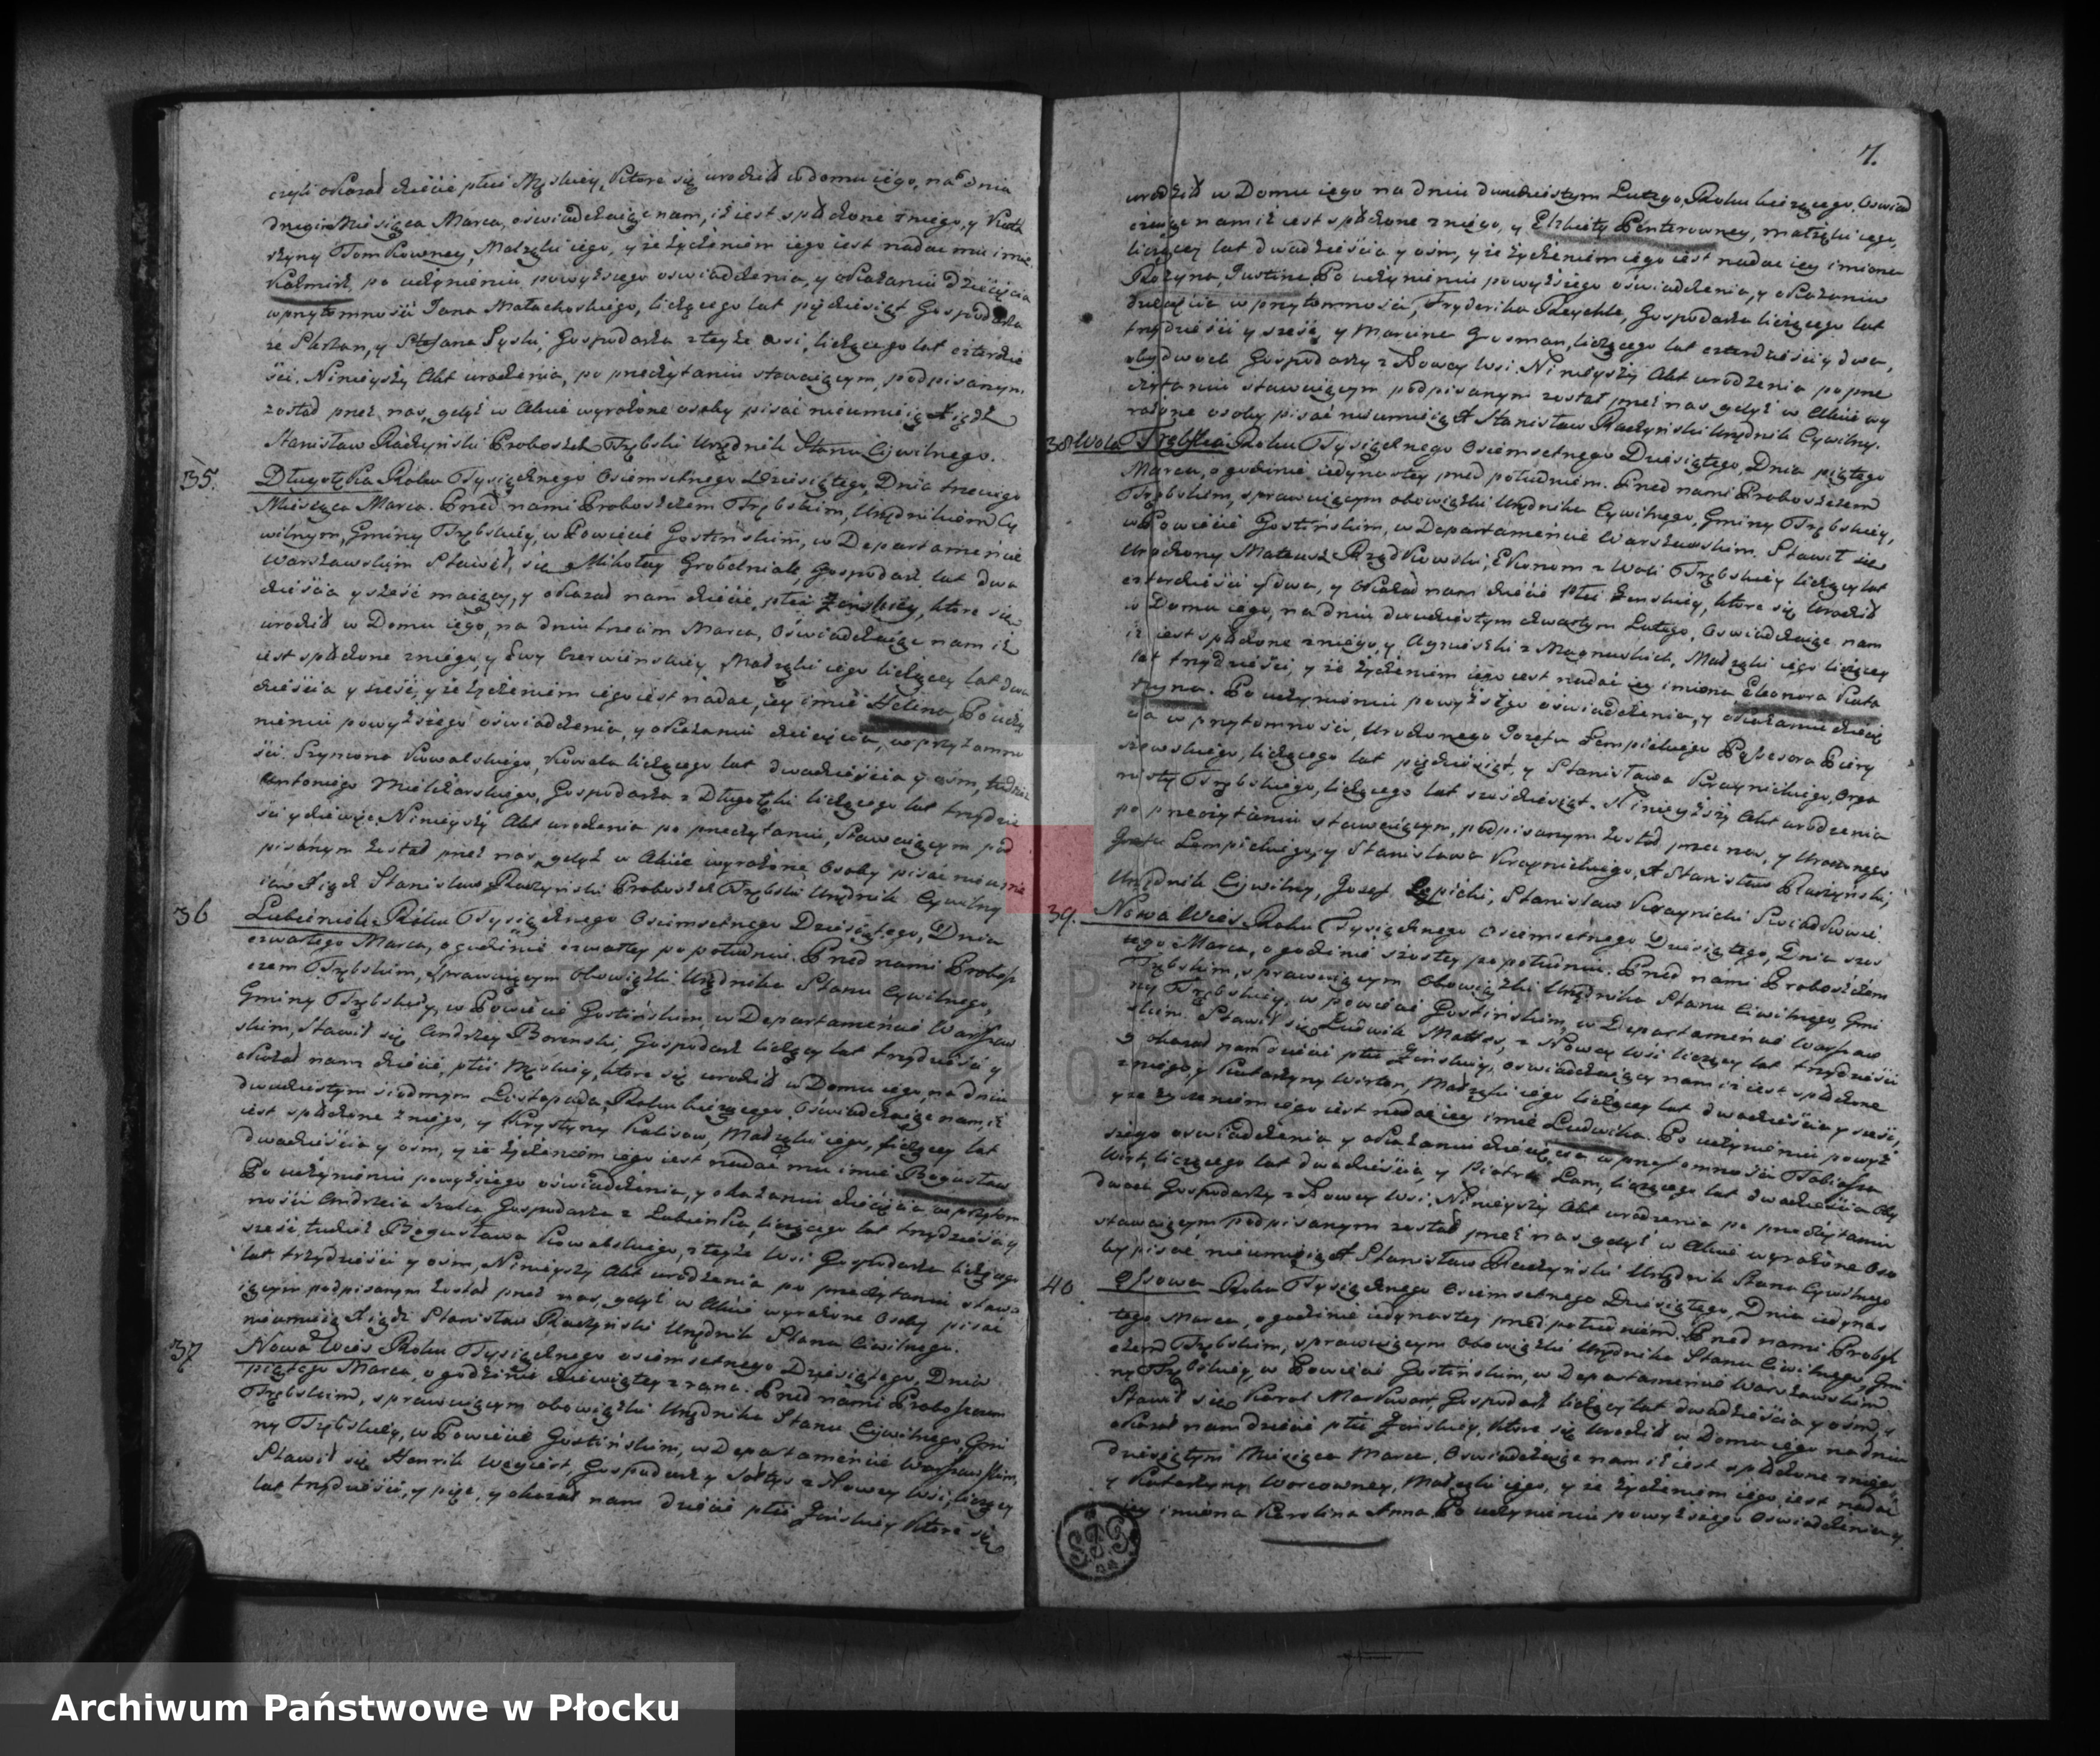 7.
czyli okazał dziécie płci Męskiey, które się urodziło w domu iego, na dniu
drugim Miesiąca Marca, oświadczaiąc nam, iż iest spłodzone z niego, y Kata
rzyny Tomkowney, Małżąki iego, y że życzeniem iego iest nadac mu imie
Kaźmirz, po uczynieniu powyższego oswiadczenia, y okazaniu Dziecięcia
w przytomności Jana Małachoskiego, liczącego lat pięćdziesiąt Gospodarza
ze Skrzan, y Stefana Syski, Gospodarza z teyże wsi, liczącego lat czterdzie
ści. Ninieyszy Akt urodzenia, po przeczytaniu stawaiącym, podpisanym
został przez nas, gdyż w Akcie wyrażone osoby pisać nieumieią. Xiądz
Stanisław Raczyński Proboszcz Trębski Urzędnik Stanu Cywilnego.
35. Długołęka Roku Tysiącznego Osiemsetnego Dziesiątego, Dnia trzeciego
Miesiąca Marca. Przed nami Proboszczem Trębskim, Urzędnikiem Cy
wilnym, Gminy Trębskiey, w Powiecie Gostińskim, w Departamencie
Warszawskim Stawił się Mikołay Grobelniak, Gospodarz lat dwa
dzieścia y sześć maiący, y okazał nam dziécie płci Żeńskiey, które się
urodziło w Domu iego, na dniu trzecim Marca, Oświadczaiąc nam iż
iest spłodzone z niego, y Ewy Czerwińskiey Małżąki iego liczącey lat dwa
dzieścia y sześć, y że życzeniem iego iest nadac, iey imie Helena, Po uczy
nieniu powyższego oświadczenia, y okazaniu dziecięcia, w przytomno
ści Szymona Kowalskiego, Kowala liczącego lat dwadzieścia y osm, tudzież
Antoniego Mielczarskiego, Gospodarza z Długołęki liczącego lat trzydzie
ści y dziewięc. Ninieyszy Akt urodzenia po przeczytaniu, Stawaiącym pod
pisanym został przez nas, gdyż w Akcie wyrażone Osoby pisać nieumie
ią. Xiądz Stanisław Raczyński Proboszcz Trębski Urzędnik Cywilny
36 Lubieniek Roku Tysiącznego Osiemsetnego Dziesiątego, Dnia
czwartego Marca, o godzinie czwartey po południu. Przed nami Probosz
czem Trębskim, Sprawuiącym Obowiązki Urzędnika Stanu Cywilnego,
Gminy Trębskiey, w Powiecie Gostińskim, w Departamencie Warszaw
skim, Stawił się Andrzey Boreński, Gospodarz liczący lat trzydzieści y
okazał nam dziécie, płci Męskiey, które się urodziło w Domu iego, na dniu
dwudziestym siódmym Listopada, Roku bieżącego, Oświadczaiąc nam iż
iest spłodzone z niego, y Krystyny Kalisow, Małżąki iego, liczącey lat
dwadzieścia y osm, y że życzeniem iego iest nadać mu imie Bogusław
Po uczynieniu powyższego oświadczenia, y okazaniu dziecięcia w przytom
ności Andrzeia Szulca, Gospodarza z Lubieńka, liczącego lat trzydzieści y
sześć, tudzież Bogusława Kowalskiego, z teyże Wsi Gospodarza liczącego
lat trzydzieści y osm, Ninieyszy Akt urodzenia po przeczytaniu stawa
iącym podpisanym został przez nas, gdyż w Akcie wyrażone Osoby pisać
nieumieią Xiądz Stanisław Raczyński Urzędnik Stanu Cywilnego.
37 Nowa Wieś Roku Tysiącznego osiemsetnego Dziesiątego, Dnia
piątego Marca, o godzinie dziewiątey z rana. Przed nami Proboszczem
Trębskim, sprawuiącym obowiązki Urzędnika Stanu Cywilnego, Gmi
ny Trębskiey, w Powiecie Gostińskim, w Departamencie Warszawskim,
Stawił się Henrik Weyiest, Gospodarz y Sołtys z Nowey Wsi, liczący
lat trzydzieści, y pięc, y okazał nam dziécie płci Żeńskiey które się
urodziło w Domu iego na dniu dwudziestym Lutego, Roku bieżącego, Oswiad
czaiąc nam iż iest spłodzone z niego, y Elżbiety Penterowney, małżąki iego,
liczącey lat dwadzieścia y osm, y że życzeniem iego iest nadac iey imiona
Rozyna, Justina. Po uczynieniu powyższego oświadczenia, y okazaniu
dziecięcia w przytomności, Fryderika Reychle, Gospodarza liczącego lat
trzydzieści y sześć, y Marcina Grosman, liczącego lat czterdzieści y dwa,
obydwoch Gospodarzy z Nowey Wsi. Ninieyszy Akt urodzenia po prze
czytaniu stawaiącym podpisanym został przez nas, gdyż w Akcie wy
rażone osoby pisać nieumieią X Stanisław Raczyński Urzędnik Cywilny.
38 Wola Trębska Roku Tysiącznego Osiemsetnego Dziesiątego, Dnia piątego
Marca, o godzinie iedynastey przed południem. Przed nami Proboszczem
Trębskim, sprawuiącym obowiązki Urzędnika Cywilnego, Gminy Trębskiey,
w Powiecie Gostińskim, w Departamencie Warszawskim. Stawił się
Urodzony Mateusz Rządkowski, Ekonom z Woli Trębskiey liczący lat
czterdzieści y dwa, y okazał nam dziécie Płci Żenskiey, które się Urodziło
w Domu iego, na dniu dwudziestym czwartym Lutego, Oswiadczaiąc nam
iż iest spłodzone z niego, y Agnieszki z Magnuskich, Małżąki iego liczącey
lat trzydzieści, y że życzeniem iego iest nadać iey imiona Eleonora Kata
rzyna. Po uczynieniu powyższego oświadczenia, y okazaniu dziecię
cia w przytomności, Urodzonego Jozefa Łempickiego Possesora Piery
szewskiego, liczącego lat pięćdziesiąt, y Stanisława Krzynickiego, Orga
nisty Trębskiego, liczącego lat sześćdziesiąt. Ninieyszy Akt urodzenia
po przeczytaniu stawaiącym, podpisanym został przez nas, y Urodzonego
Jozefa Łempickiego, y Stanisława Krzynickiego, X Stanisław Raczyński,
Urzędnik Cywilny, Jozef Łępicki, Stanisław Krzynicki Swiadkowie.
39. Nowa Wieś Roku Tysiącznego Osiemsetnego Dziesiątego, Dnia szós
tego Marca, o godzinie szostey po południu. Przed nami Proboszczem
Trębskim, sprawuiącym Obowiązki Urzędnika Stanu Cywilnego, Gmi
ny Trębskiey, w powiecie Gostińskim, w Departamencie Warszaw
skim. Stawił się Ludwik Mattes, z Nowey Wśi liczący lat trzydzieści
y okazał nam dziécie płci Żeńskiey, oswiadczaiący nam iż iest spłodzone
z niego, y Katarzyny Wirten, Małżąki iego liczącey lat dwadzieścia y sześć,
y że życzeniem iego iest nadać iey imie Ludwika. Po uczynieniu powyż
szego oswiadczenia y okazaniu dziecięcia w przytomności Tobiasza
Wirt, liczącego lat dwadzieścia, y Piotra Lam, liczącego lat dwadzieścia Oby
dwoch Gospodarzy z Nowey Wsi. Ninieyszy Akt urodzenia po przeczytaniu
stawaiącym podpisanym został przez nas, gdyż w Akcie wyrażone Oso
by pisać nieumieią X Stanisław Raczyński Urzędnik Stanu Cywilnego
40 Ossowa Roku Tysiącznego Osiemsetnego Dziesiątego, Dnia iedynas
tego Marca, o godzinie iedynastey przed południem. Przed nami Probosz
czem Trębskim, sprawuiącym Obowiązki Urzędnika Stanu Cywilnego, Gmi
ny Trębskiey, w Powiecie Gostińskim, w Departamencie Warszawskim
Stawił się Karol Markwart, Gospodarz liczący lat dwadzieścia y osm, y
okazał nam dziécie płci Żeńskiey, które się urodziło w Domu iego na dniu
dziesiątym Miesiąca Marca, Oswiadczaiąc nam iż iest spłodzone z niego,
y Katarzyny Worcowney, Małżąki iego, y że życzeniem iego iest nadać
iey imiona Karolina Anna. Po uczynieniu powyższego Oswiadczenia y
Archiwum Państwowe w Płocku